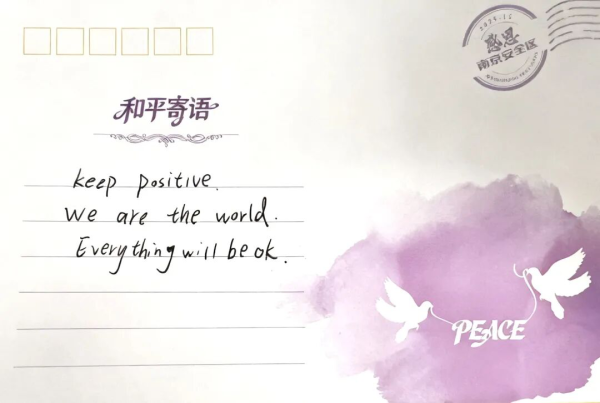 感恩
南京安全区
和平寄语
keep positive.
We are the world.
Everything will be ok.
PEACE